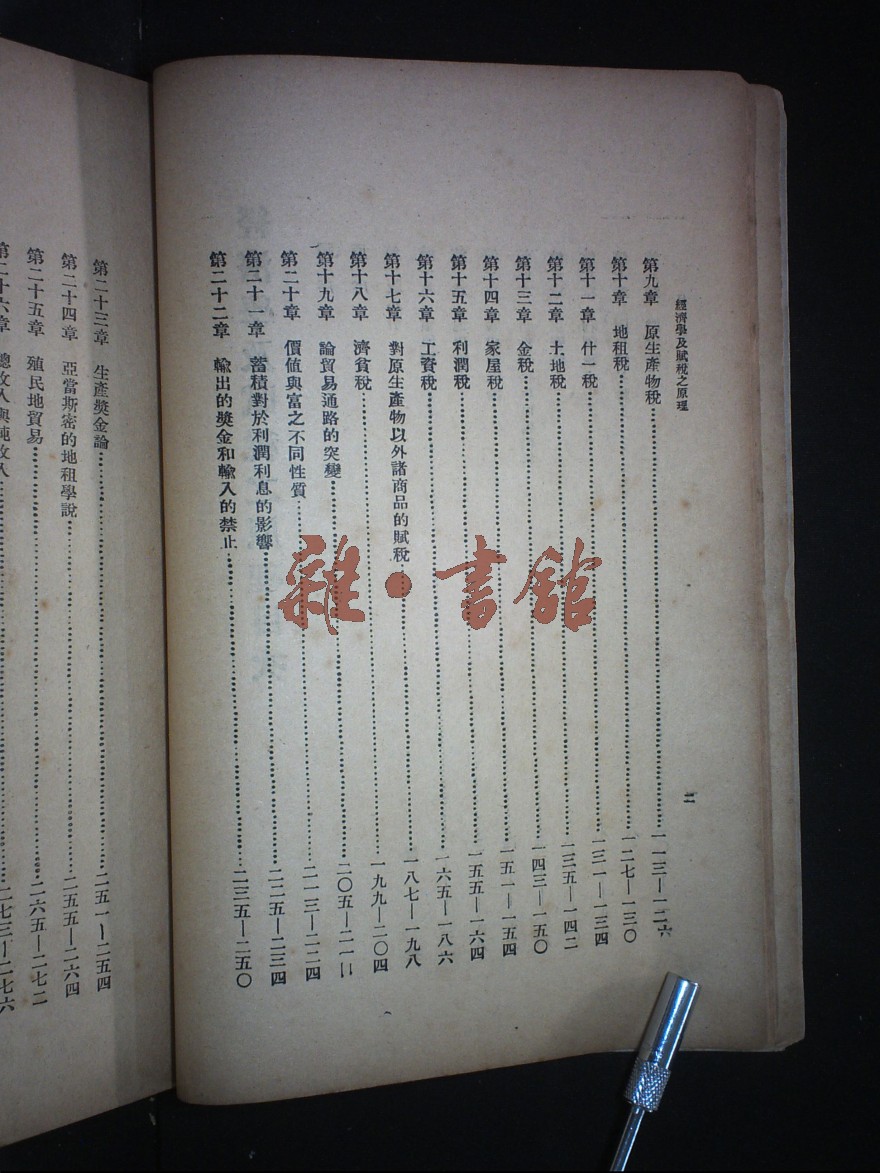 經濟學及賦稅之原理
二
第九章 原生產物稅……一一三—一二六
第十章 地租稅……一二七—一三〇
第十一章 什一稅……一三一—一三四
第十二章 土地稅……一三五—一四二
第十三章 金稅……一四三—一五〇
第十四章 家屋稅……一五一—一五四
第十五章 利潤稅……一五五—一六四
第十六章 工資稅……一六五—一八六
第十七章 對原生產物以外諸商品的賦稅……一八七—一九八
第十八章 濟貧稅……一九九—二〇四
第十九章 論貿易通路的突變……二〇五—二一二
第二十章 價値與富之不同性質……二一三—二二四
第二十一章 蓄積對於利潤利息的影響……二二五—二三四
第二十二章 輸出的獎金和輸入的禁止……二三五—二五〇
第二十三章 生產獎金論……二五一—二五四
第二十四章 亞當斯密的地租學說……二五五—二六四
第二十五章 殖民地貿易……二六五—二七二
第二十六章 總收入與純收入……二七三—二七六
雜·書館